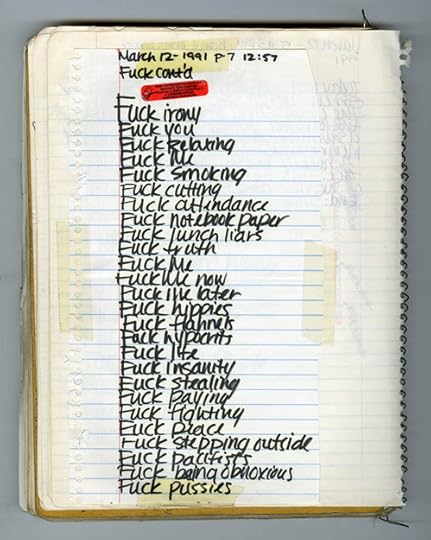 March 12-1991 p-7 12:57
Fuck cont'd
Fuck irony
Fuck you
Fuck Relaxing
Fuck Me
Fuck Smoking
Fuck cutting
Fuck attendance
Fuck notebook paper
Fuck lunch liars
Fuck truth
Fuck Me
Fuck Me now
Fuck me later
Fuck hippies
Fuck flannels
Fuck hypocrits
Fuck life
Fuck insanity
Fuck stealing
Fuck paying
Fuck fighting
Fuck peace
Fuck stepping outside
Fuck pacifists
Fuck being obnoxious
Fuck pussies